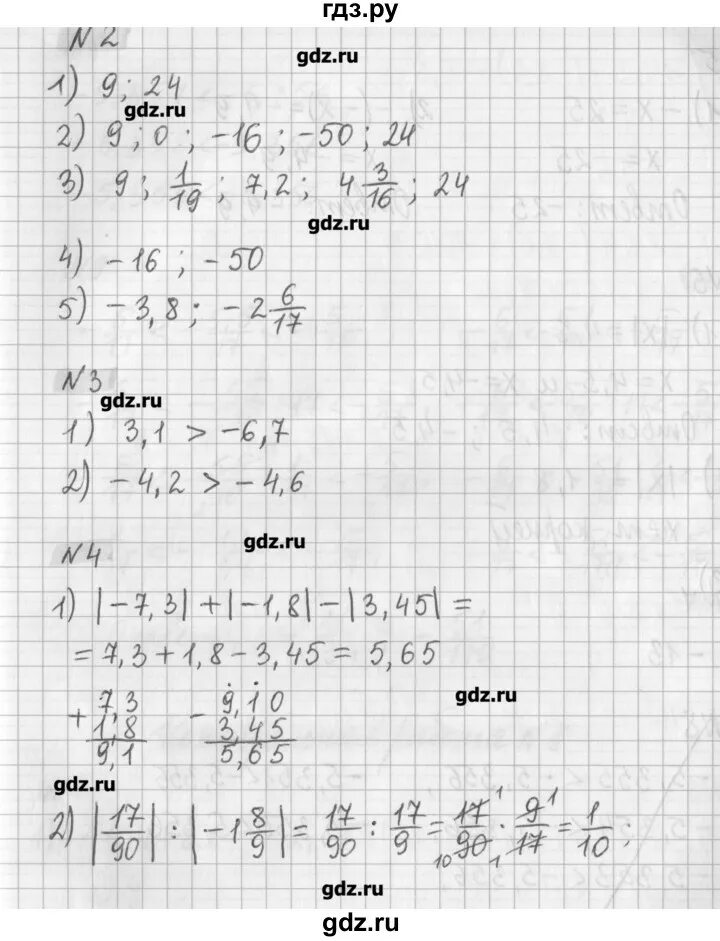 гдз.ру
N 2
gdz.ru
1) 9; 24
gdz.ru
2) 9; 0; -16; -50; 24
3) 9; 1/19; 7,2; 4 3/16; 24
gdz.ru
4) -16; -50
5) -3,8; -2 6/17
N 3
gdz.ru
1) 3,1 > -6,7
2) -4,2 > -4,6
gdz.ru
N 4
1) |-7,3| + |-1,8| - |3,45| =
= 7,3 + 1,8 - 3,45 = 5,65
+ 7,3 - 9,10
gdz.ru
1,8 3,45
9,1 5,65
gdz.ru
2) |17/90| : |-1 8/9| = 17/90 : 17/9 = 17 1/90 10 · 9 1/17 1 = 1/10.
gdz.ru
gdz.ru